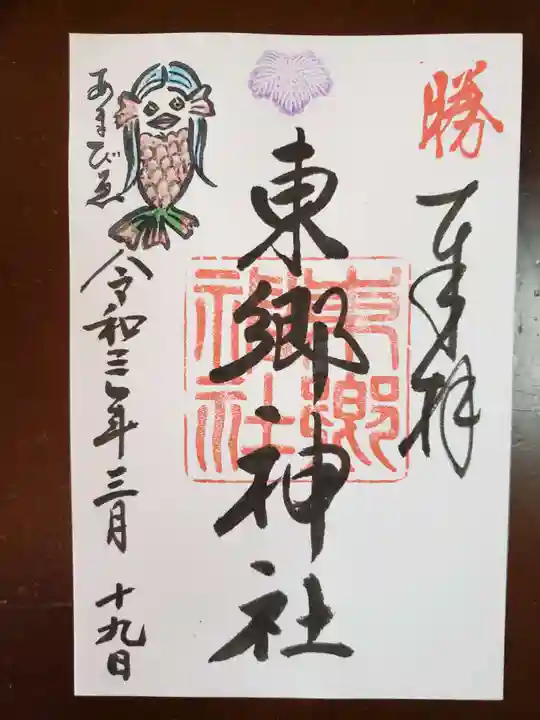 勝
奉拝
東郷神社
東郷神社
あまびゑ
令和三年三月十九日